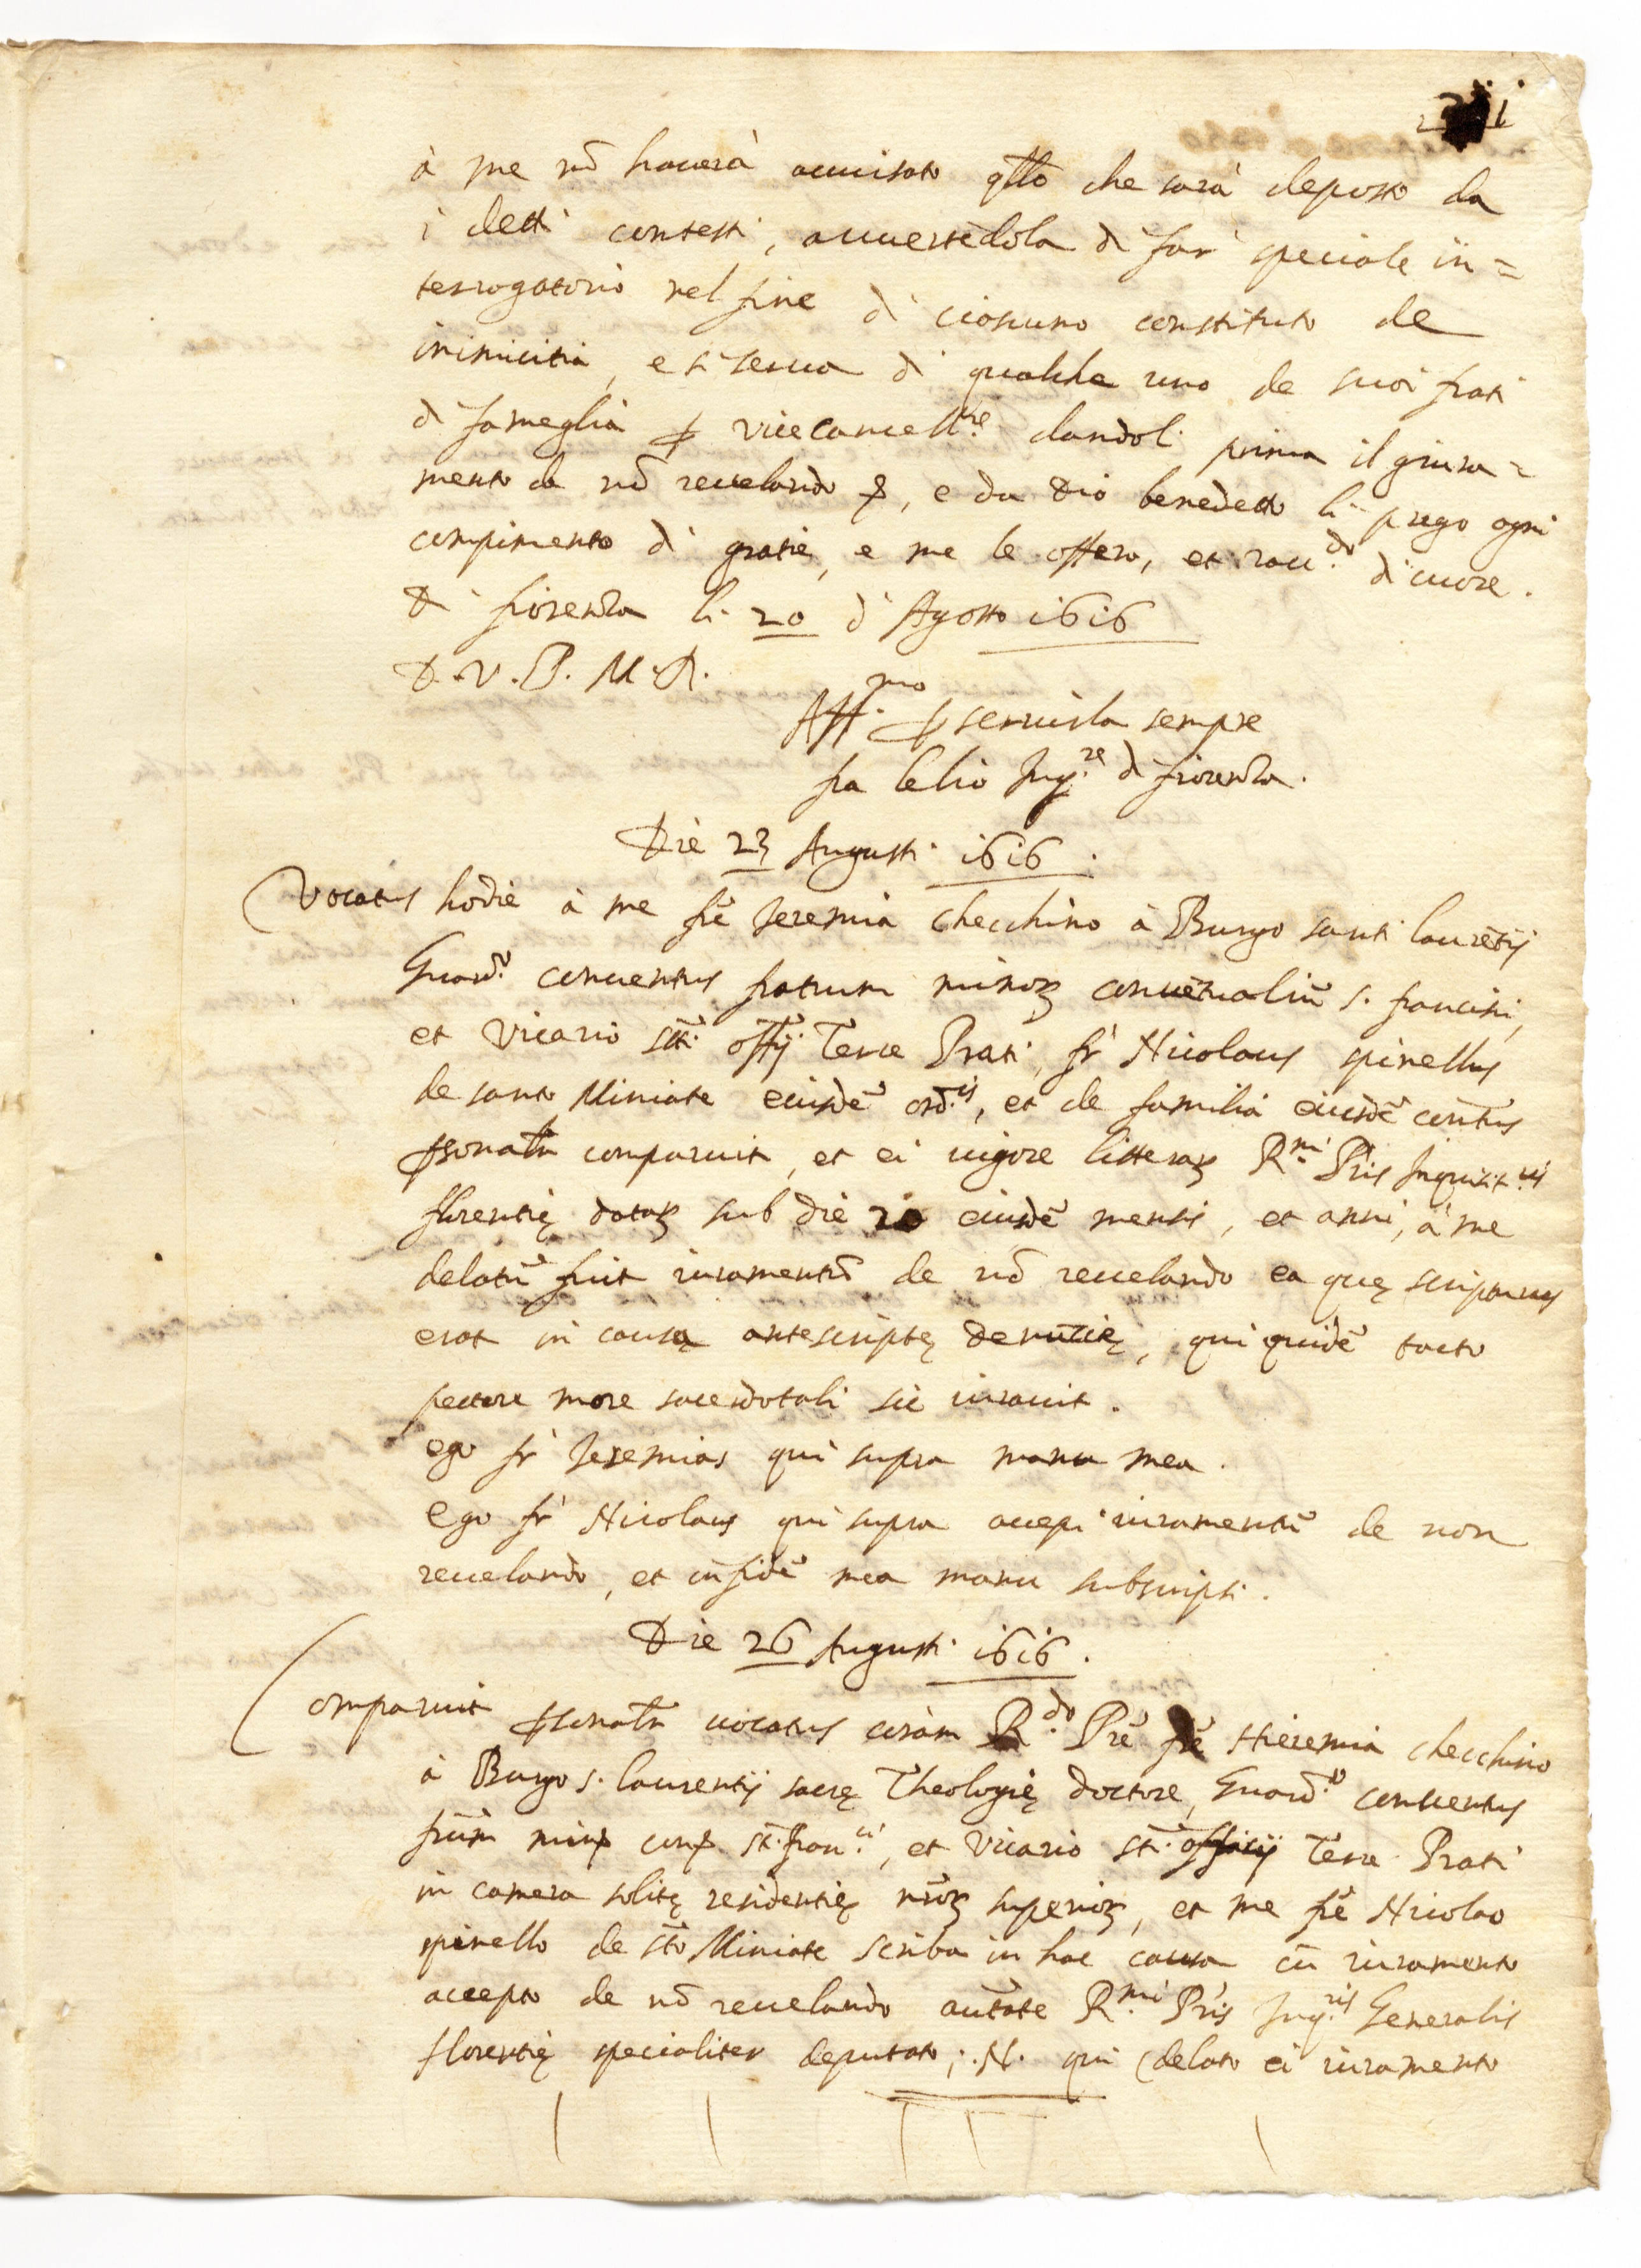 à me nõ hauerà auuisato q̃llo che sarà deposto da
i detti contesti, auuertẽdola di far speciale in=
terrogatorio nel fine di ciascuno constituto de
inimicitia, e si serua di qualche uno de suoi frati
di fameglia ꝑ vicecancell.re dandoli prima il giura=
mento de nõ reuelando &, e da Dio benedetto li prego ogni
compimento di gratie, e me le offero, et racc.do di cuore.
Di fiorenza li 20 di Agosto 1616
D. V. P. M. R.
Aff.mo ꝑ seruirla sempre
fra lelio Inq.re di fiorenza.
Die 23 Augusti 1616.
Vocatus hodie à me frẽ Jeremia checchino à Burgo santi laurẽtij
Guard.o conuentus fratrum minoꝝ conuẽtualiũ s. francisci,
et vicario sc̃ti offij Terre Prati, fr Nicolaus spinellus
de santo Miniate eiusdẽ ord.is, et de familia eiusdẽ contus
ꝑsonalr comparuit, et ei uigore litteraꝝ R.mi Pris Inquisit.ris
florentię dataꝝ sub die 20 eiusdẽ mensis, et anni, à me
delatũ fuit iuramentũ de nõ reuelando ea quę scripturus
erat in causa antescriptę denũtię, qui quidẽ tacto
pectore more sacerdotali sic iurauit.
ego fr Jeremias qui supra manu mea.
Ego fr Nicolaus qui supra accepi iuramentũ de non
reuelando, et in fidẽ mea manu subscripsi.
Die 26 Augusti 1616.
Comparuit ꝑsonalr uocatus coram R.do Prẽ frẽ Hieremia checchino
à Burgo s. laurentij sacrę Theologię doctore, Guard.o conuentus
frũm minꝝ conꝝ st. fran.ci, et vicario sti officij Terre Prati
in camera solitę residentię nrõꝝ superioꝝ, et me frẽ Nicolao
spinello de sto Miniate scriba in hac causa cũ iuramento
accepto de nõ reuelando auctate R.mi Pris Inq.ris Generalis
florentię specialiter deputato; .N. qui (delato ei iuramento